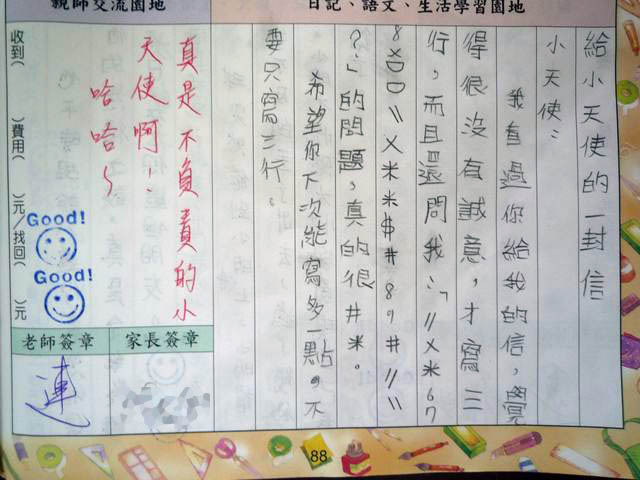 日記、語文、生活學習園地
給小天使的一封信
小天使：
我看過你給我的信，覺
得很沒有誠意，才寫三
行，而且還問我：「//×米67
8801\\×米米$#89#//\\
？」的問題，真的很#米。
希望你下次能寫多一點。不
要只寫三行。
親師交流園地
真是不負責的小
天使啊！
哈哈～
收到（ ）費用（ ）元/找回（ ）元
Good!
Good!
家長簽章
老師簽章
連
88